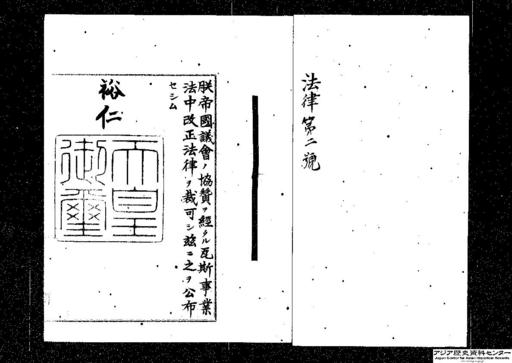 法律第二號
朕帝國議會ノ協賛ヲ經タル瓦斯事業
法中改正法律ヲ裁可シ茲ニ之ヲ公布
セシム
裕仁
天皇
御璽
アジア歴史資料センター
Japan Center for Asian Historical Records